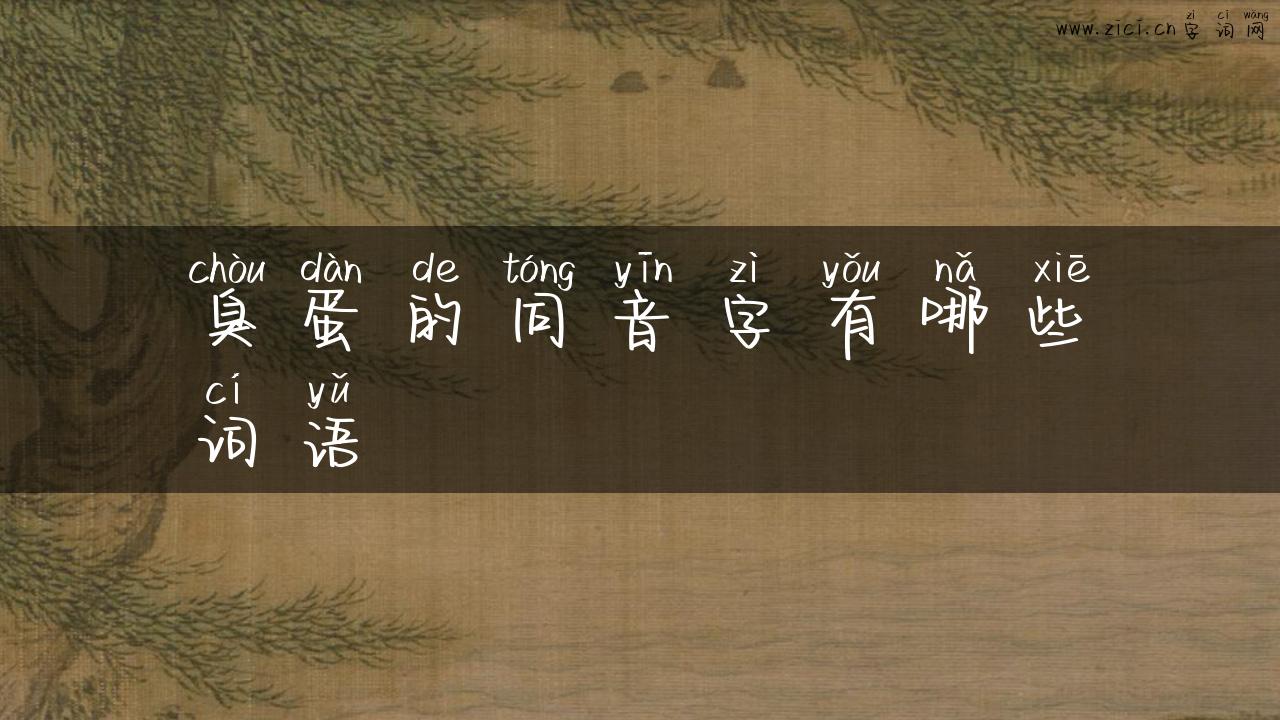 zì cí wǎng
www.zici.cn字词网
chòu dàn de tóng yīn zì yǒu nǎ xiē
臭蛋的同音字有哪些
cí yǔ
词语